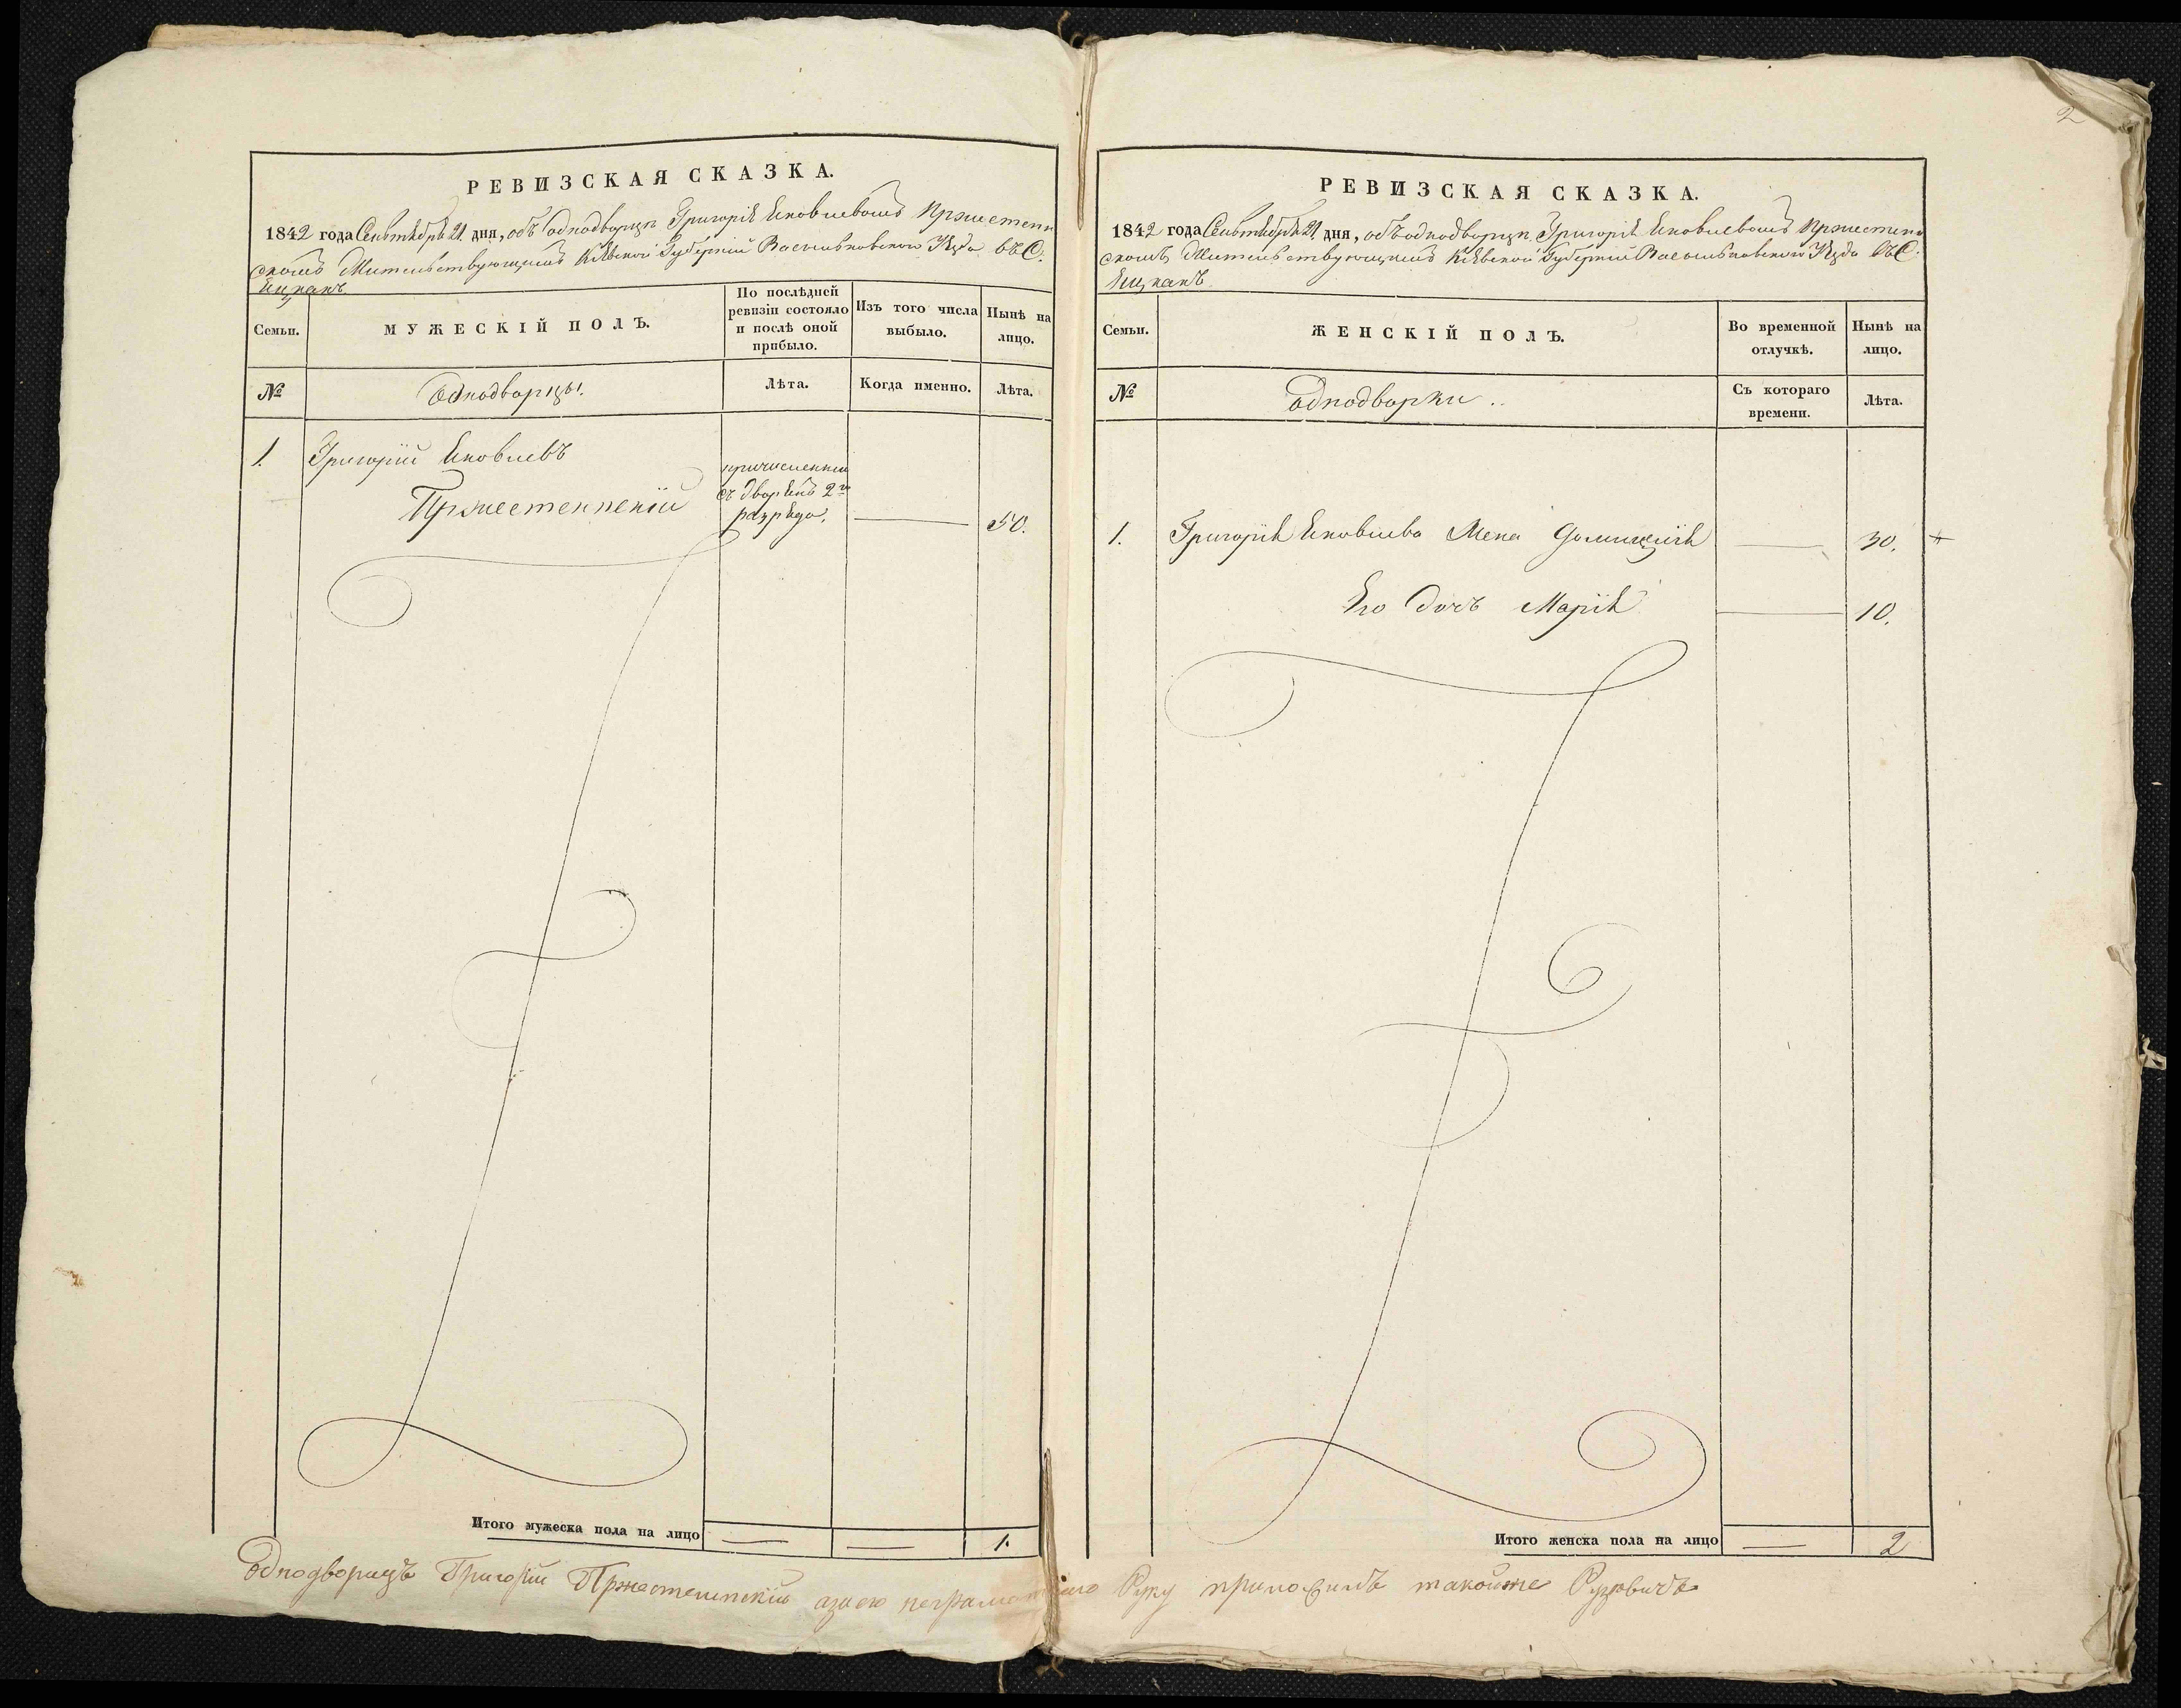 2
РЕВИЗСКАЯ СКАЗКА.
1842 года Сентября 21. дня, объ однодворцѣ Григоріѣ Яковлевомъ Пржестепн
скомъ Жительствующимъ Кіевской Губерніи Васильковскаго Уѣзда въ С.
Семьи.
МУЖЕСКІЙ ПОЛЪ.
По послѣдней ревизіи состояло и послѣ оной прибыло.
Изъ того числа выбыло.
Нынѣ на лицо.
№
Однодворцы.
Лѣта.
Когда именно.
Лѣта.
1. Григорій Яковлевъ
Пржестеппскій
причисленны
съ дворянъ 2го
разряда.
50.
Итого мужеска пола на лицо
1.
РЕВИЗСКАЯ СКАЗКА.
1842 года Сентября 21. дня, объ однодворцѣ Григоріѣ Яковлевомъ Пржестепп
скомъ Жительствующимъ Кіевской Губерніи Васильковскаго Уѣзда въ С.
Семьи.
ЖЕНСКІЙ ПОЛЪ.
Во временной отлучкѣ.
Нынѣ на лицо.
№
Однодворки
Съ котораго времени.
Лѣта.
1. Григорія Яковлева Жена 30.
Его дочь Марія 10.
Итого женска пола на лицо
2
Однодворецъ Григорій Пржестеппскій а за его неграмотного Руку приложилъ такойже